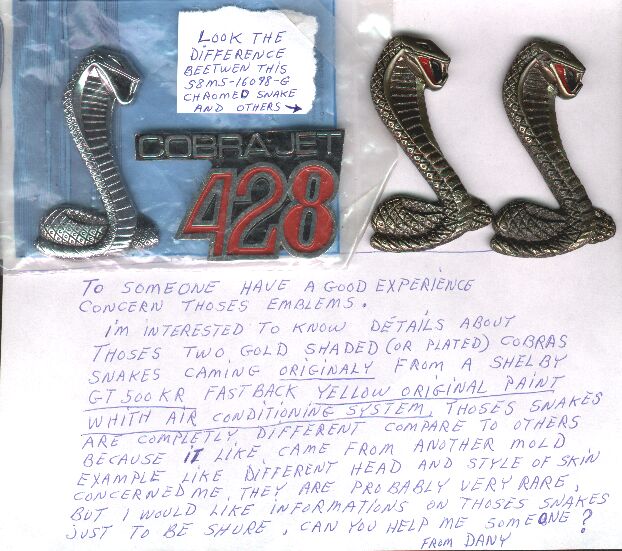 LOOK THE
DIFFERENCE
BEETWEN THIS
S8MS-16098-G
CHROMED SNAKE
AND OTHERS →
COBRA JET
428
TO SOMEONE HAVE A GOOD EXPERIENCE
CONCERN THOSES EMBLEMS.
I'M INTERESTED TO KNOW DÉTAILS ABOUT
THOSES TWO, GOLD SHADED (OR PLATED) COBRAS
SNAKES CAMING ORIGINALY FROM A SHELBY
GT 500 KR FASTBACK YELLOW ORIGINAL PAINT
WHITH AIR CONDITIONING SYSTEM, THOSES SNAKES
ARE COMPLETLY DIFFERENT COMPARE TO OTHERS
BECAUSE IT LIKE, CAME FROM ANOTHER MOLD,
EXAMPLE LIKE DIFFERENT HEAD AND STYLE OF SKIN
CONCERNED ME, THEY ARE PROBABLY VERY RARE,
BUT I WOULD LIKE INFORMATIONS ON THOSES SNAKES
JUST TO BE SHURE, CAN YOU HELP ME SOMEONE?
FROM DANY